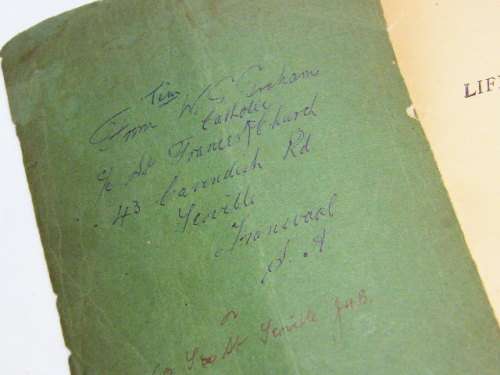 Tim
From W. S. Graham
Catholic
St Frances Church
43 Cavendish Rd
Yeoville
Transvaal
S. A
or
St Yeoville JHB.
LIF